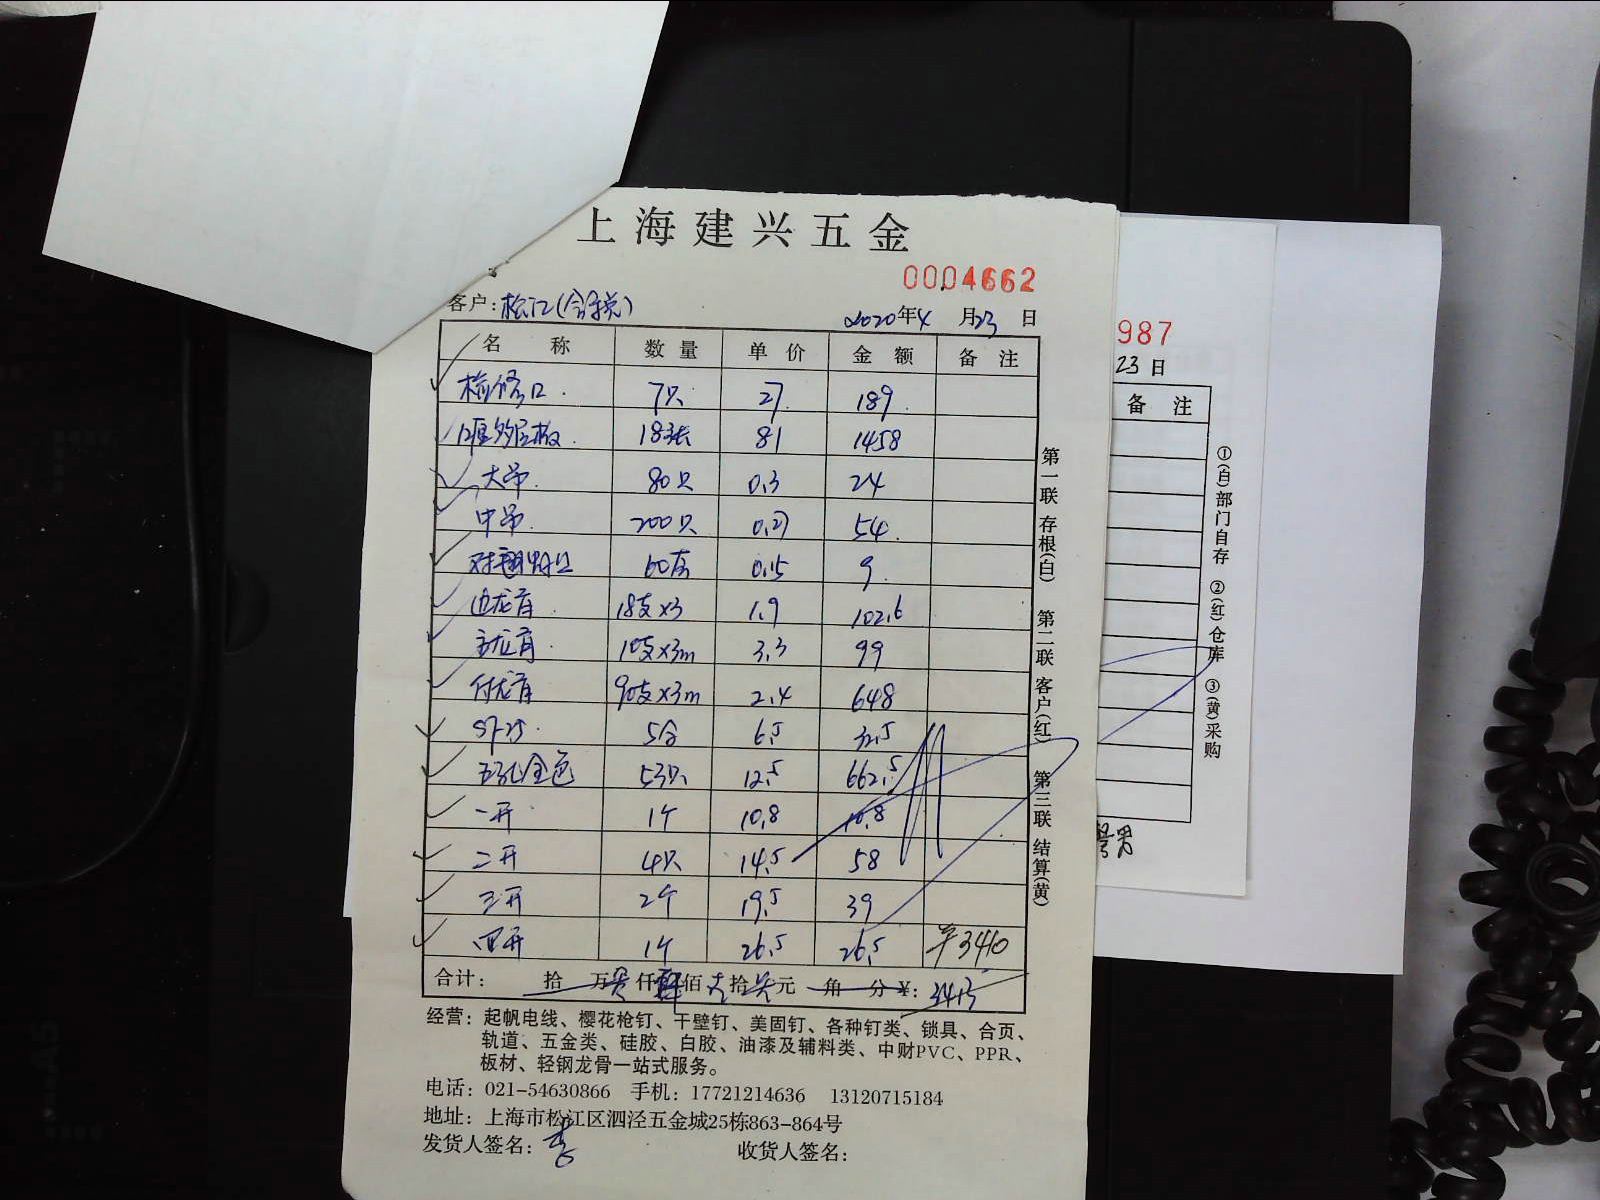 上海建兴五金
0004662
客户: 松江(含税)
2020年4月23日
名称 数量 单价 金额 备注
检修口 7只 27 189
多层板 18张 81 1458
大吊 80只 0.3 24
中吊 200只 0.27 54
60套 0.15 9
边龙骨 18支×3 1.9 102.6
主龙骨 10支×3m 3.3 99
付龙骨 90支×3m 2.4 648
5盒 6.5 32.5
五孔金色 53只 12.5 662.5
一开 1个 10.8 10.8
二开 4只 14.5 58
三开 2个 19.5 39
四开 1个 26.5 26.5 ¥3410
合计: 拾 万 仟 佰 拾 元 角 分 ¥: 3413
经营: 起帆电线、樱花枪钉、干壁钉、美固钉、各种钉类、锁具、合页、
轨道、五金类、硅胶、白胶、油漆及辅料类、中财PVC、PPR、
板材、轻钢龙骨一站式服务。
电话: 021-54630866 手机: 17721214636 13120715184
地址: 上海市松江区泗泾五金城25栋863-864号
发货人签名: 李 收货人签名:
第一联 存根(白) 第二联 客户(红) 第三联 结算(黄)
987
23日
备注
①(白)部门自存 ②(红)仓库 ③(黄)采购